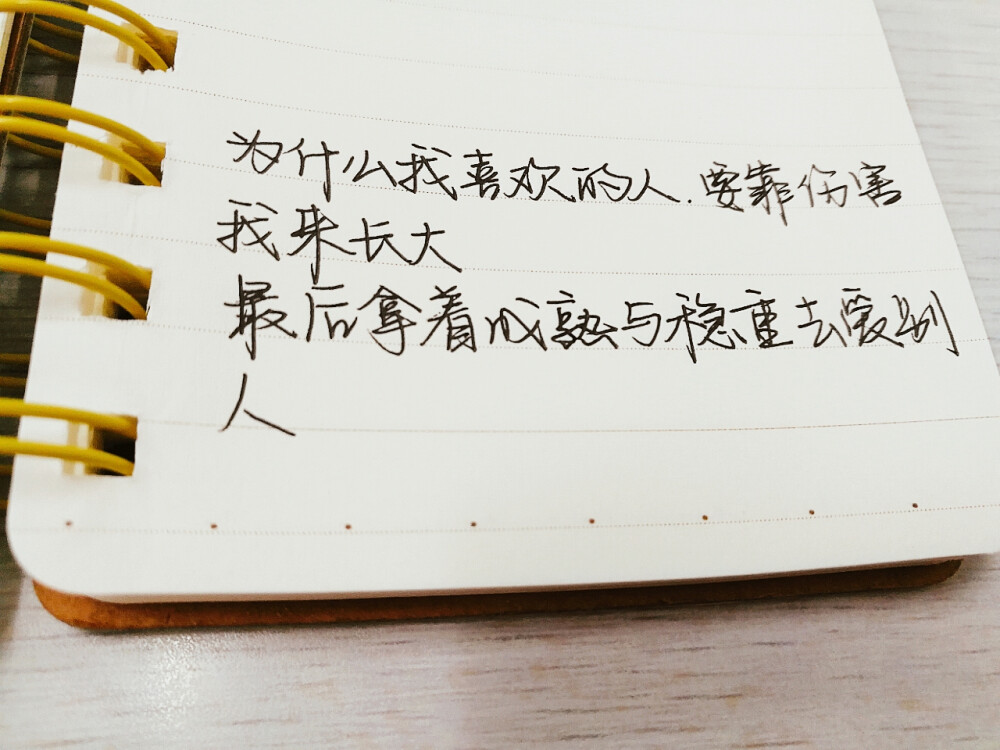 为什么我喜欢的人.要靠伤害
我来长大
最后拿着成熟与稳重去爱别
人